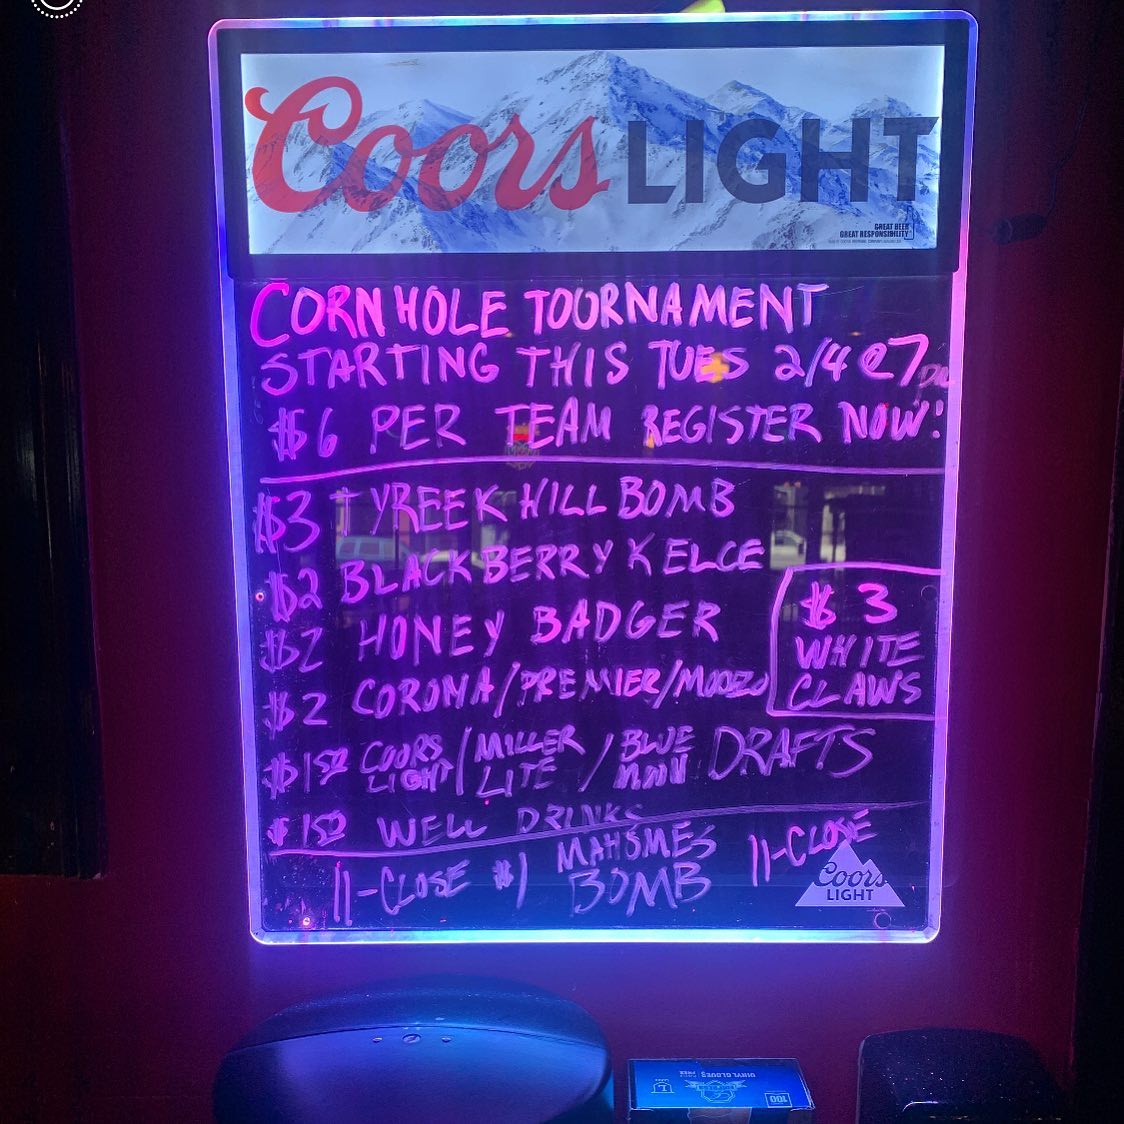 Coors LIGHT
GREAT BEER
GREAT RESPONSIBILITY
CORNHOLE TOURNAMENT
STARTING THIS TUES 2/4 @ 7pm
$6 PER TEAM REGISTER NOW!
$3 TYREEK HILL BOMB
$2 BLACKBERRY KELCE
$2 HONEY BADGER
$2 CORONA/PREMIER/MODELO
$3
WHITE
CLAWS
$1.50 COORS LIGHT / MILLER LITE / BLUE MOON DRAFTS
$1.50 WELL DRINKS
11-CLOSE $1 MAHOMES BOMB 11-CLOSE
Coors
LIGHT
VINYL GLOVES
100
L